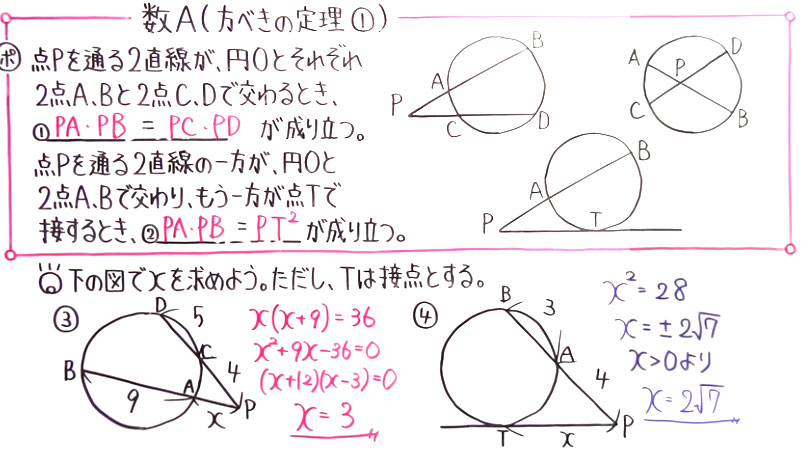 数A(方べきの定理①)
ポ 点Pを通る2直線が、円Oとそれぞれ
2点A、Bと2点C、Dで交わるとき、
① PA・PB = PC・PD が成り立つ。
点Pを通る2直線の一方が、円Oと
2点A、Bで交わり、もう一方が点Tで
接するとき、② PA・PB = PT² が成り立つ。
P A B C D
A D P C B
P A B T
下の図でxを求めよう。ただし、Tは接点とする。
③
D 5 C 4 B 9 A x P
x(x+9)=36
x²+9x-36=0
(x+12)(x-3)=0
x=3
④
B 3 A 4 T x P
x²=28
x=±2√7
x>0より
x=2√7